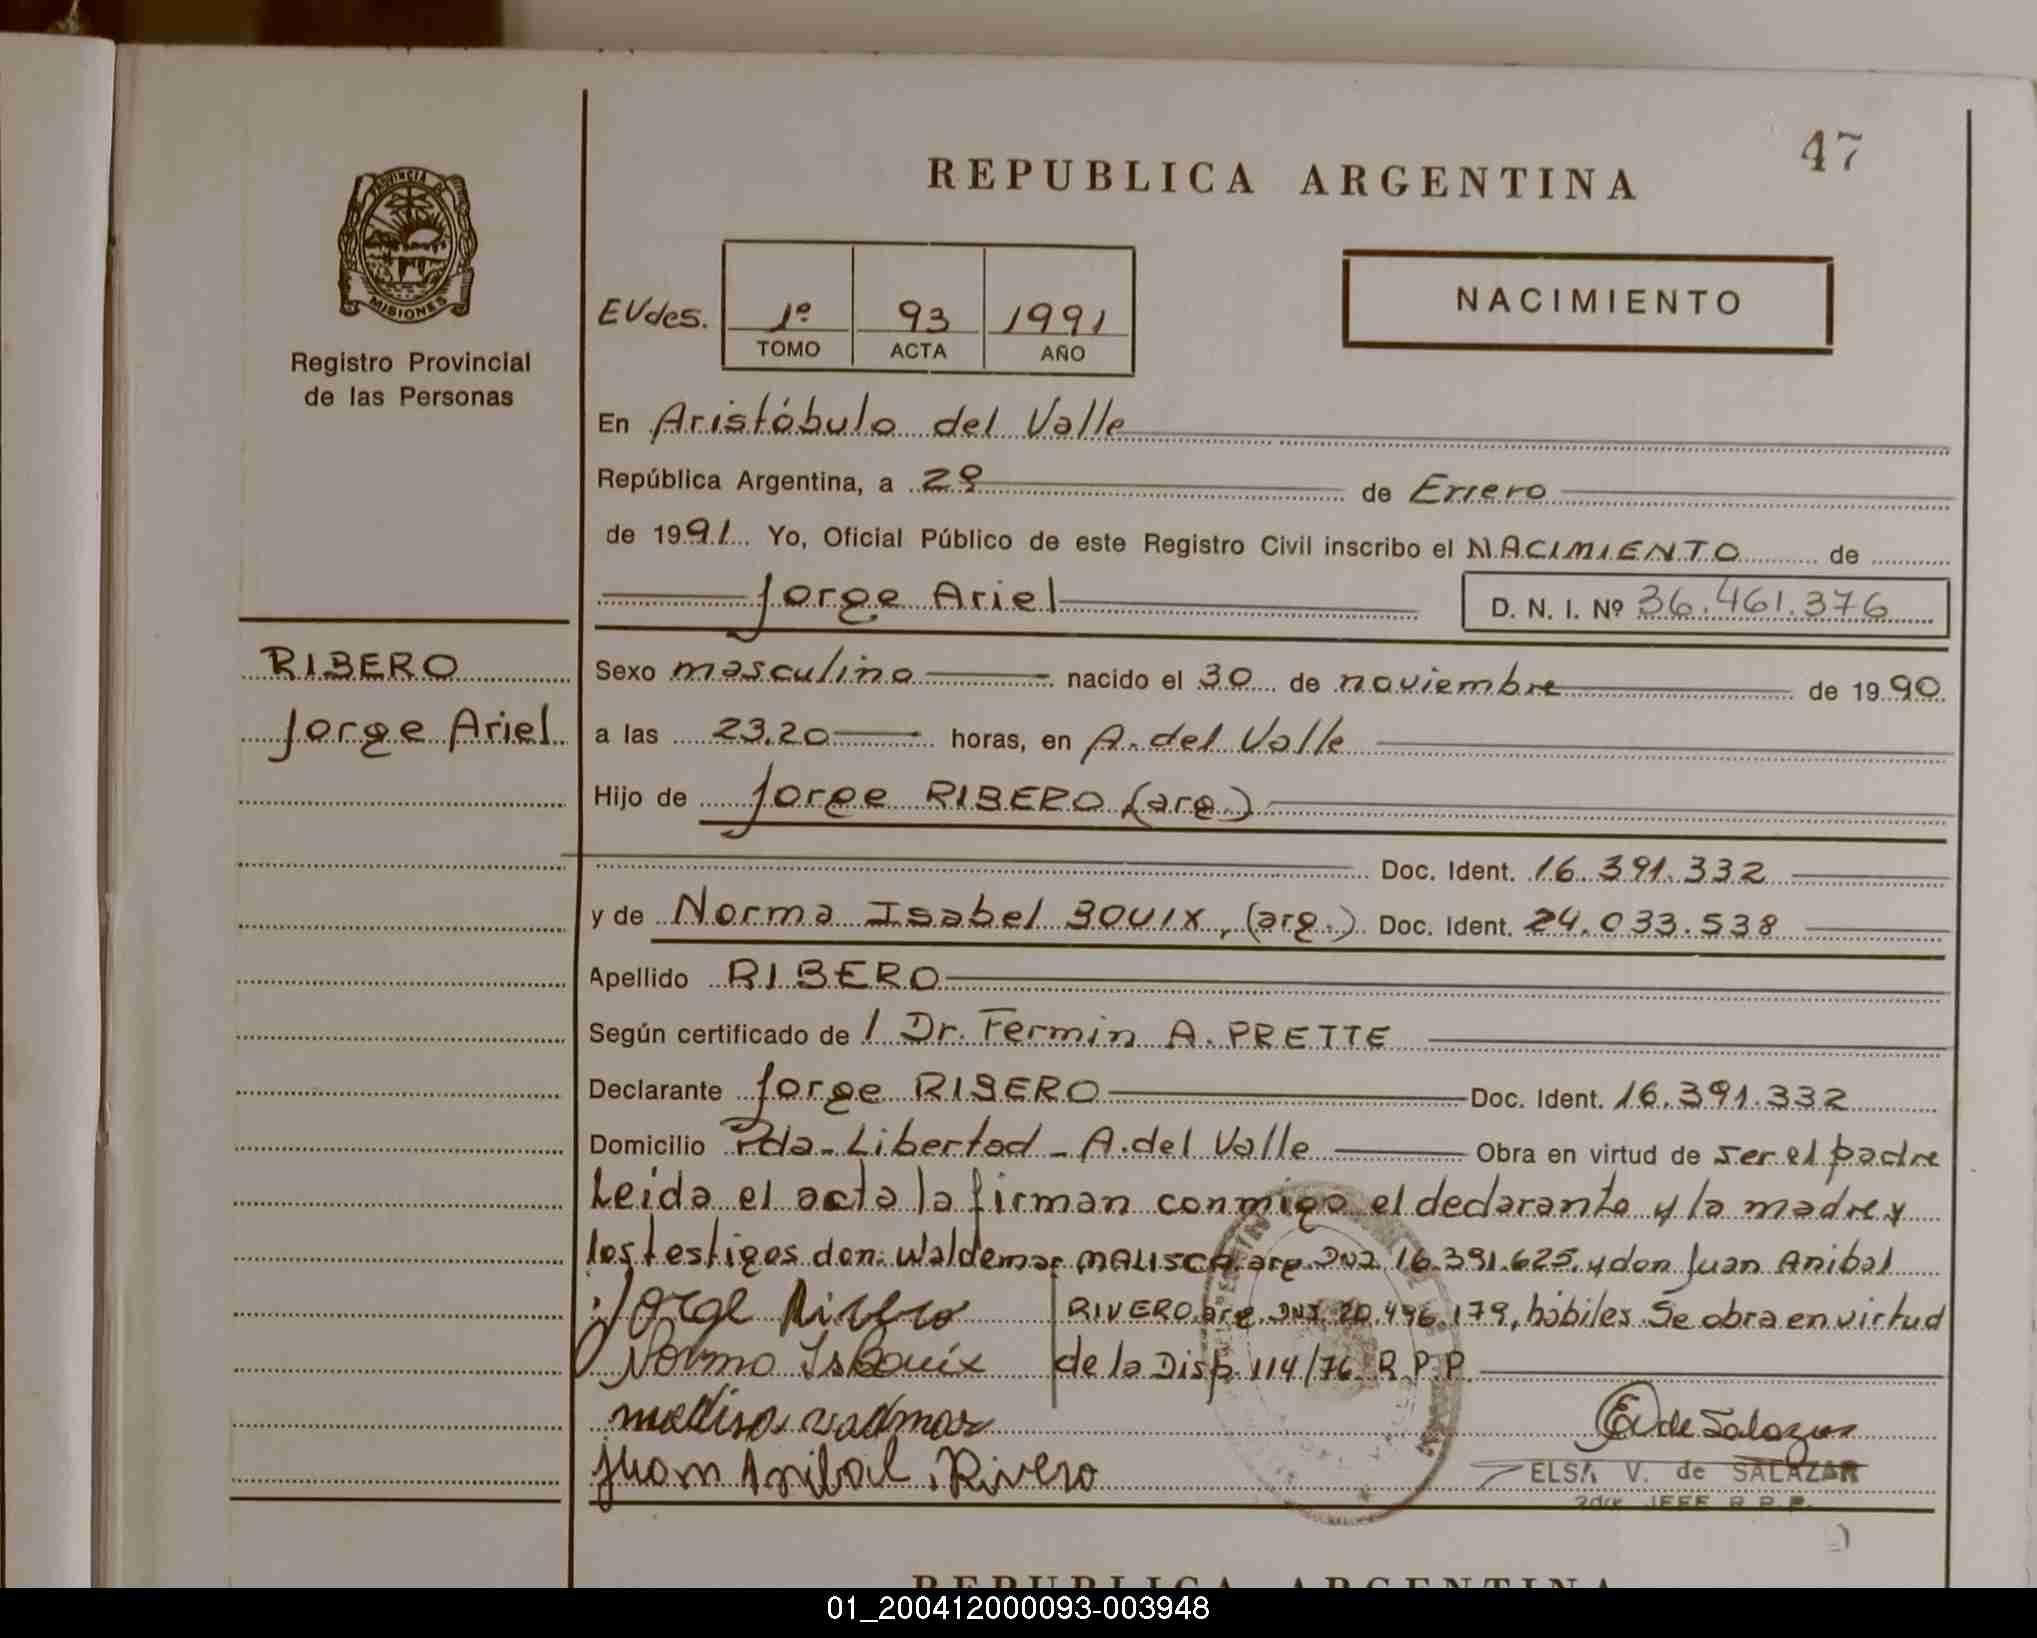 47
REPUBLICA ARGENTINA
PROVINCIA DE
MISIONES
Registro Provincial
de las Personas
EVdes. 1º 93 1991
TOMO ACTA AÑO
NACIMIENTO
En Aristóbulo del Valle
República Argentina, a 29 de Enero
de 1991 Yo, Oficial Público de este Registro Civil inscribo el NACIMIENTO de
Jorge Ariel D. N. I. Nº 36.461.376
RIBERO
Jorge Ariel
Sexo masculino nacido el 30 de noviembre de 1990
a las 23,20 horas, en A. del Valle
Hijo de Jorge RIBERO (arg.)
Doc. Ident. 16.391.332
y de Norma Isabel BOUIX, (arg.) Doc. Ident. 24.033.538
Apellido RIBERO
Según certificado de l Dr. Fermin A. PRETTE
Declarante Jorge RIBERO Doc. Ident. 16.391.332
Domicilio Pda. Libertad - A. del Valle Obra en virtud de ser el padre
Leida el acta la firman conmigo el declarante y la madre y
los testigos don: Waldemar MALISCA arg. DNI 16.391.625, y don Juan Anibal
Jorge Rivero RIVERO, arg. DNI. 20.496.179, hábiles. Se obra en virtud
Norma Is Bouix de la Disp. 114/76 R.P.P.
Juan Anibal Rivero
EV de Salazar
ELSA V. de SALAZAR
JEFE R.P.P.
REPUBLICA ARGENTINA
01_200412000093-003948